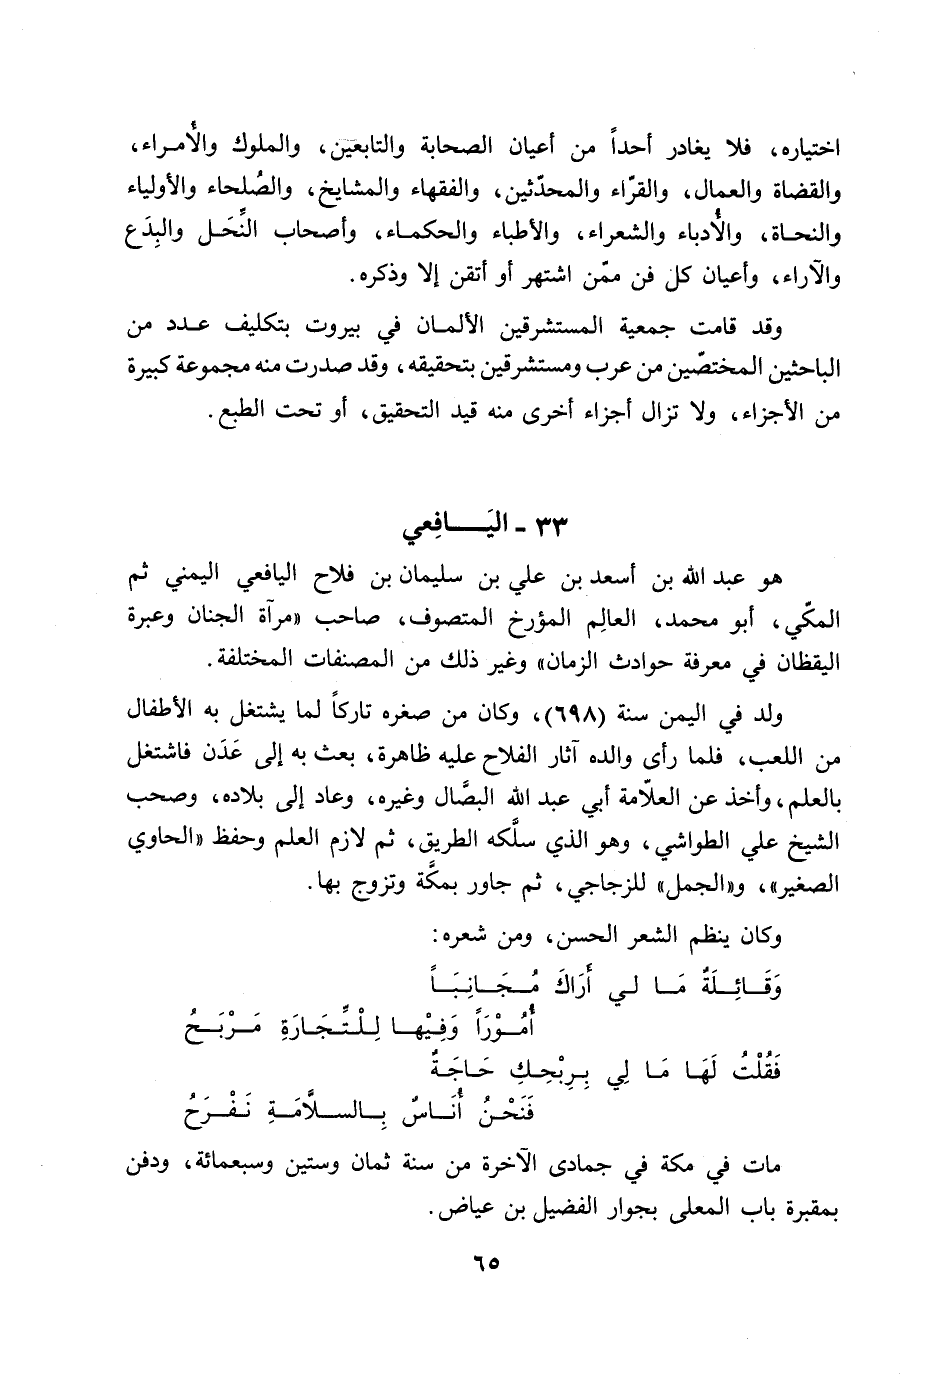 اختياره، فلا يغادر أحداً من أعيان الصحابة والتابعين، والملوك والأُمراء،
والقضاة والعمال، والقرّاء والمحدّثين، والفقهاء والمشايخ، والصُلحاء والأولياء
والنحاة، والأُدباء والشعراء، والأطباء والحكماء، وأصحاب النِّحَل والبِدَع
والآراء، وأعيان كل فن ممّن اشتهر أو أتقن إلا وذكره.
وقد قامت جمعية المستشرقين الألمان في بيروت بتكليف عدد من
الباحثين المختصّين من عرب ومستشرقين بتحقيقه، وقد صدرت منه مجموعة كبيرة
من الأجزاء، ولا تزال أجزاء أخرى منه قيد التحقيق، أو تحت الطبع.
٣٣ - اليَافِعي
هو عبد الله بن أسعد بن علي بن سليمان بن فلاح اليافعي اليمني ثم
المكّي، أبو محمد، العالِم المؤرخ المتصوف، صاحب «مرآة الجنان وعبرة
اليقظان في معرفة حوادث الزمان» وغير ذلك من المصنفات المختلفة.
ولد في اليمن سنة (٦٩٨)، وكان من صغره تاركاً لما يشتغل به الأطفال
من اللعب، فلما رأى والده آثار الفلاح عليه ظاهرة، بعث به إلى عَدَن فاشتغل
بالعلم، وأخذ عن العلّامة أبي عبد الله البصَّال وغيره، وعاد إلى بلاده، وصحب
الشيخ علي الطواشي، وهو الذي سلَّكه الطريق، ثم لازم العلم وحفظ «الحاوي
الصغير»، و«الجمل» للزجاجي، ثم جاور بمكَّة وتزوج بها.
وكان ينظم الشعر الحسن، ومن شعره:
وَقَائِلَةٌ مَا لي أَرَاكَ مُجَانِبَاً
أُمُوْرَاً وَفِيْهَا لِلْتِّجَارَةِ مَرْبَحُ
فَقُلْتُ لَهَا مَا لِي بِرِبْحِكِ حَاجَةٌ
فَنَحْنُ أُنَاسٌ بِالسلَّامَةِ نَفْرَحُ
مات في مكة في جمادى الآخرة من سنة ثمان وستين وسبعمائة، ودفن
بمقبرة باب المعلى بجوار الفضيل بن عياض.
٦٥